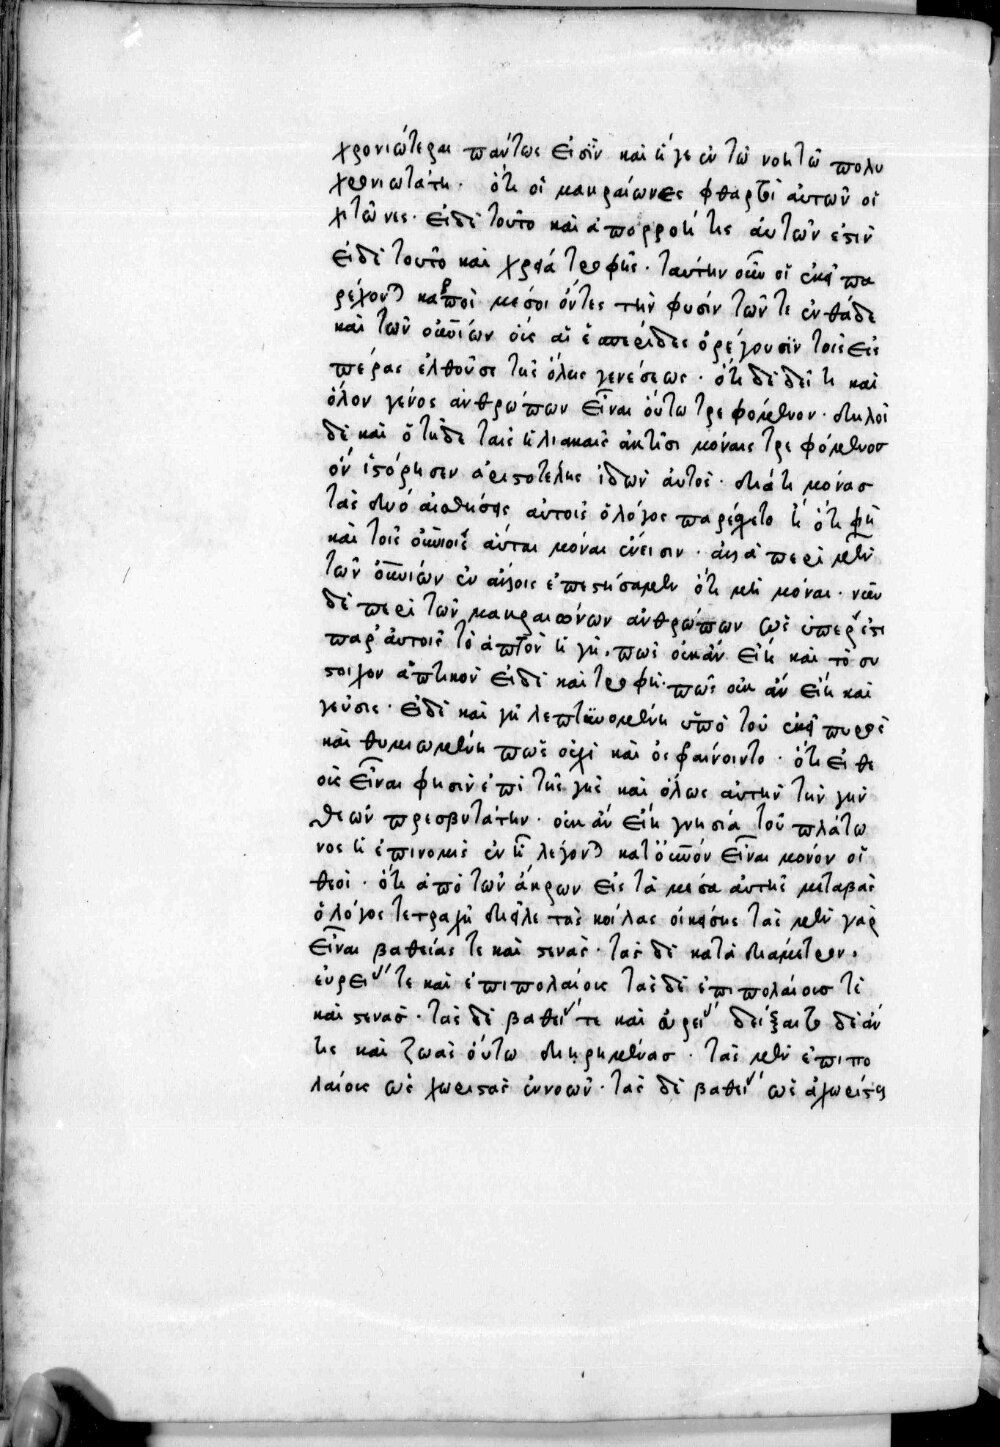 χρονιώτεραι πάντως εἰσὶν καὶ ἥ γε ἐν τῷ νοητῷ πολυ
χρονιωτάτη. ὅτι οἱ μακραίωνες φθαρτοὶ αὐτῶν οἱ
χιτῶνες. εἰ δὲ τοῦτο καὶ ἀπορροή τις αὐτῶν ἐστὶν
εἰ δὲ τοῦτο καὶ χρεία τροφῆς. ταύτην οὖν οἱ ἐκεῖ πα
ρέχονται καρποὶ μέσοι ὄντες τὴν φύσιν τῶν τε ἐνθάδε
καὶ τῶν οὐρανίων οἷς αἱ ἑσπερίδες ὀρέγουσιν τοῖς εἰς
πέρας ἐλθοῦσι τῆς ὅλης γενέσεως. ὅτι δὲ δεῖ τι καὶ
ὅλον γένος ἀνθρώπων εἶναι οὕτω τρεφόμενον. δηλοῖ
δὲ καὶ ὁ τῇδε ταῖς ἡλιακαῖς ἀκτῖσι μόναις τρεφόμενος
ὃν ἱστόρησεν ἀριστοτέλης ἰδὼν αὐτός. διὰ τί μόνας
τὰς δύο αἰσθήσεις αὐτοῖς ὁ λόγος παρέσχετο ἢ ὅτι φησὶ
καὶ τοῖς οὐρανίοις αὗται μόναι ἔνεισιν. ἀλλὰ περὶ μὲν
τῶν οὐρανίων ἐν ἄλλοις ἐπεστήσαμεν ὅτι μὴ μόναι. νῦν
δὲ περὶ τῶν μακραιώνων ἀνθρώπων ὡς ὑπέρεστι
παρ' αὐτοῖς τὸ ἁπτὸν ἡ γῆ. πῶς οὐκ ἂν εἴη καὶ τὸ συ
στοιχον ἁπτικὸν εἰ δὲ καὶ τροφή. πῶς οὐκ ἂν εἴη καὶ
γεῦσις. εἰ δὲ καὶ γῆ λεπτυνομένη ὑπὸ τοῦ ἐκεῖ πυρὸς
καὶ θυμιωμένη πῶς οὐχὶ καὶ ὀσφραίνοιντο. ὅτι εἰ θε
οὺς εἶναί φησιν ἐπὶ τῆς γῆς καὶ ὅλως αὐτὴν τὴν γῆν
θεῶν πρεσβυτάτην. οὐκ ἂν εἴη γνησία τοῦ πλάτω
νος ἡ ἐπινομὶς ἐν ᾗ λέγονται κατ' οὐρανὸν εἶναι μόνον οἱ
θεοί. ὅτι ἀπὸ τῶν ἄκρων εἰς τὰ μέσα αὐτῆς μεταβὰς
ὁ λόγος τετραχῇ διεῖλε τὰς κοίλας οἰκήσεις τὰς μὲν γὰρ
εἶναι βαθείας τε καὶ στενάς. τὰς δὲ κατὰ διάμετρον.
εὐρείας τε καὶ ἐπιπολαίους τὰς δὲ ἐπιπολαίους τὲ
καὶ στενάς. τὰς δὲ βαθείας τε καὶ εὐρείας δείξαιτο δὲ ἄν
τις καὶ ζωὰς οὕτω διῃρημένας. τὰς μὲν ἐπιπο
λαίους ὡς χωριστὰς ἐννοῶν. τὰς δὲ βαθείας ὡς ἀχωρίστους